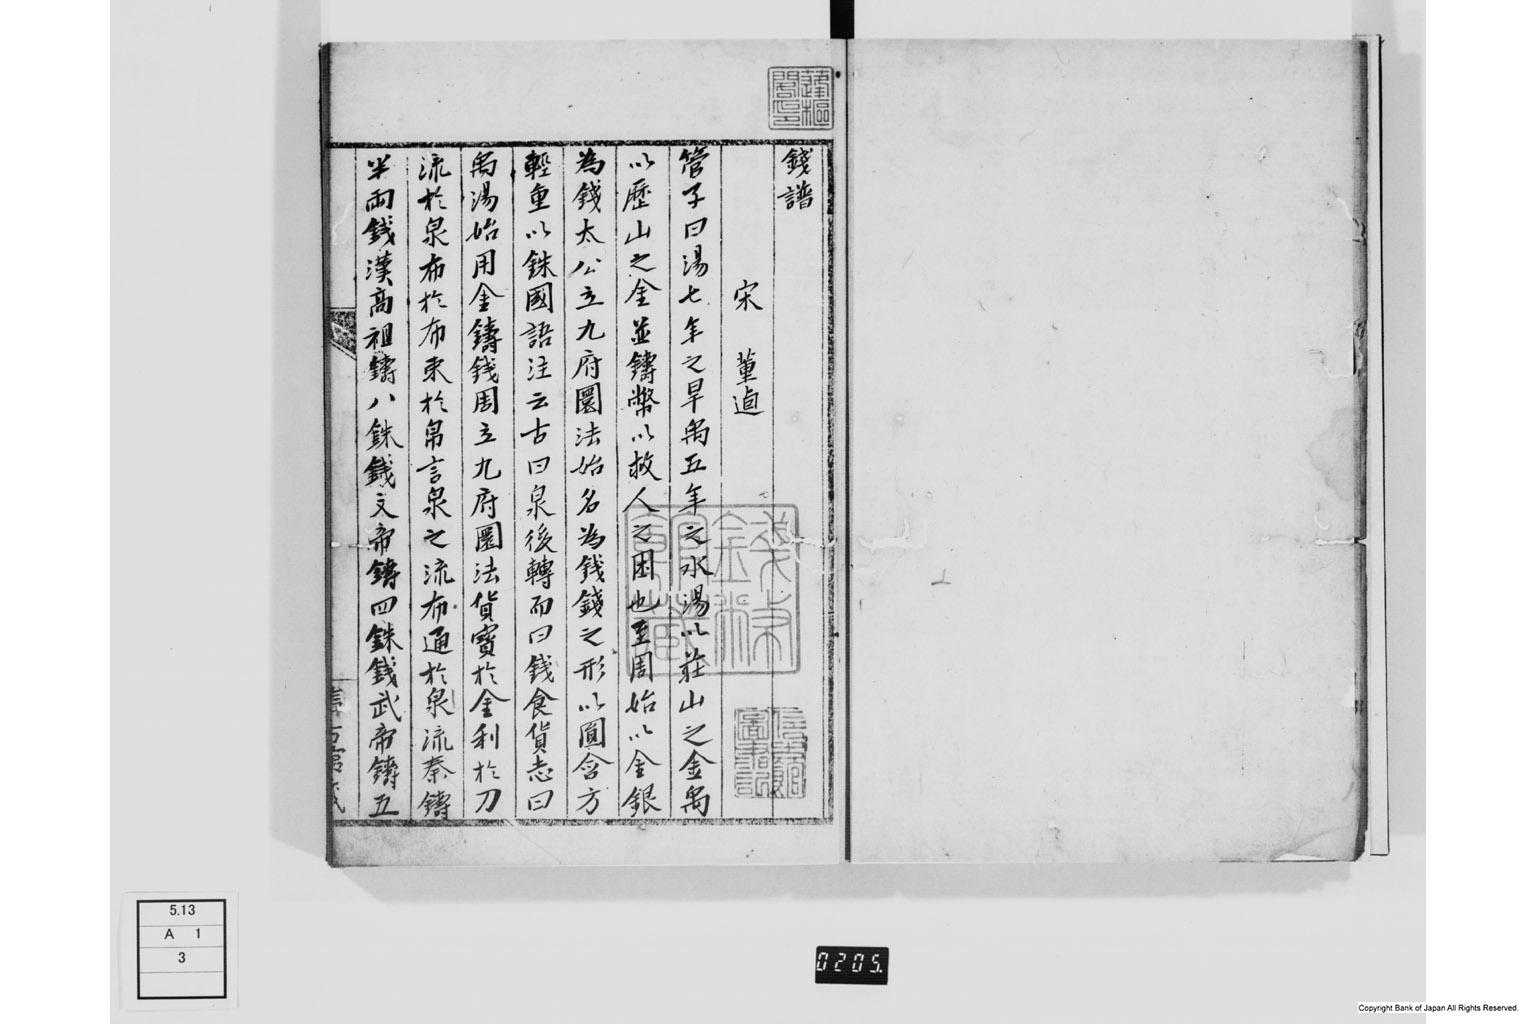 錢譜
宋 董逌
管子曰湯七年之旱禹五年之水湯以莊山之金禹
以歷山之金並鑄幣以救人之困也至周始以金銀
為錢太公立九府圜法始名為錢錢之形以圓含方
輕重以銖國語注云古曰泉後轉而曰錢食貨志曰
禹湯始用金鑄錢周立九府圜法貨寶於金利於刀
流於泉布於布束於帛言泉之流布通於泉流秦鑄
半兩錢漢高祖鑄八銖錢文帝鑄四銖錢武帝鑄五
錢幣館藏
5.13
A 1
3
0205.
Copyright Bank of Japan All Rights Reserved.